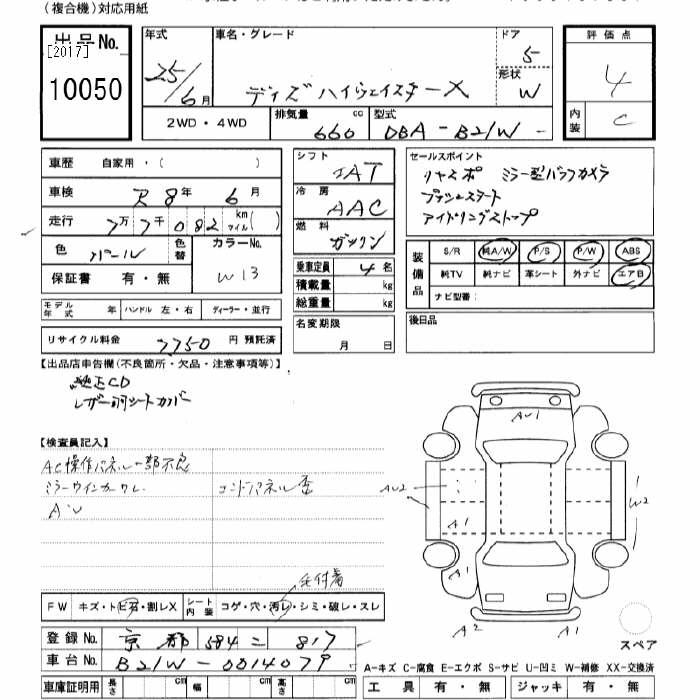 (複合機)対応用紙
出品No.
[2017]
10050
年式 25/6月
車名・グレード デイズ ハイウェイスター X
ドア 5
形状 W
2WD・4WD
排気量 660 cc
型式 DBA-B21W-
評価点 4
内装 C
車歴 自家用・( )
車検 R8年 6月
走行 7万7千082 km マイル( )
色 パール
色替
カラーNo. W13
保証書 有・無
モデル年式 年 ハンドル 左・右 ディーラー・並行
リサイクル料金 7750 円 預託済
シフト IAT
冷房 AAC
燃料 ガソリン
乗車定員 4名
積載量 kg
総重量 kg
名変期限 月 日
セールスポイント
リヤスポ ミラー型バックカメラ
プッシュスタート
アイドリングストップ
装備品
S/R 純A/W P/S P/W ABS
純TV 純ナビ 革シート 外ナビ エアB
ナビ型番:
後日品
【出品店申告欄(不良箇所・欠品・注意事項等)】
純正CD
レザー調シートカバー
【検査員記入】
AC操作パネル一部不良
ミラーウインカーワレ
AU
コンドパネル歪
毛付着
FW キズ・トビ石・割レX
シート内装 コゲ・穴・汚レ・シミ・破レ・スレ
登録No. 京都 584 ニ 817
車台No. B21W-0014079
車庫証明用 長さ cm 幅 cm 高さ cm
AU1
AU2
A1
W2
A1
A2
A1
スペア
A-キズ C-腐食 E-エクボ S-サビ U-凹ミ W-補修 XX-交換済
工具 有・無 ジャッキ 有・無